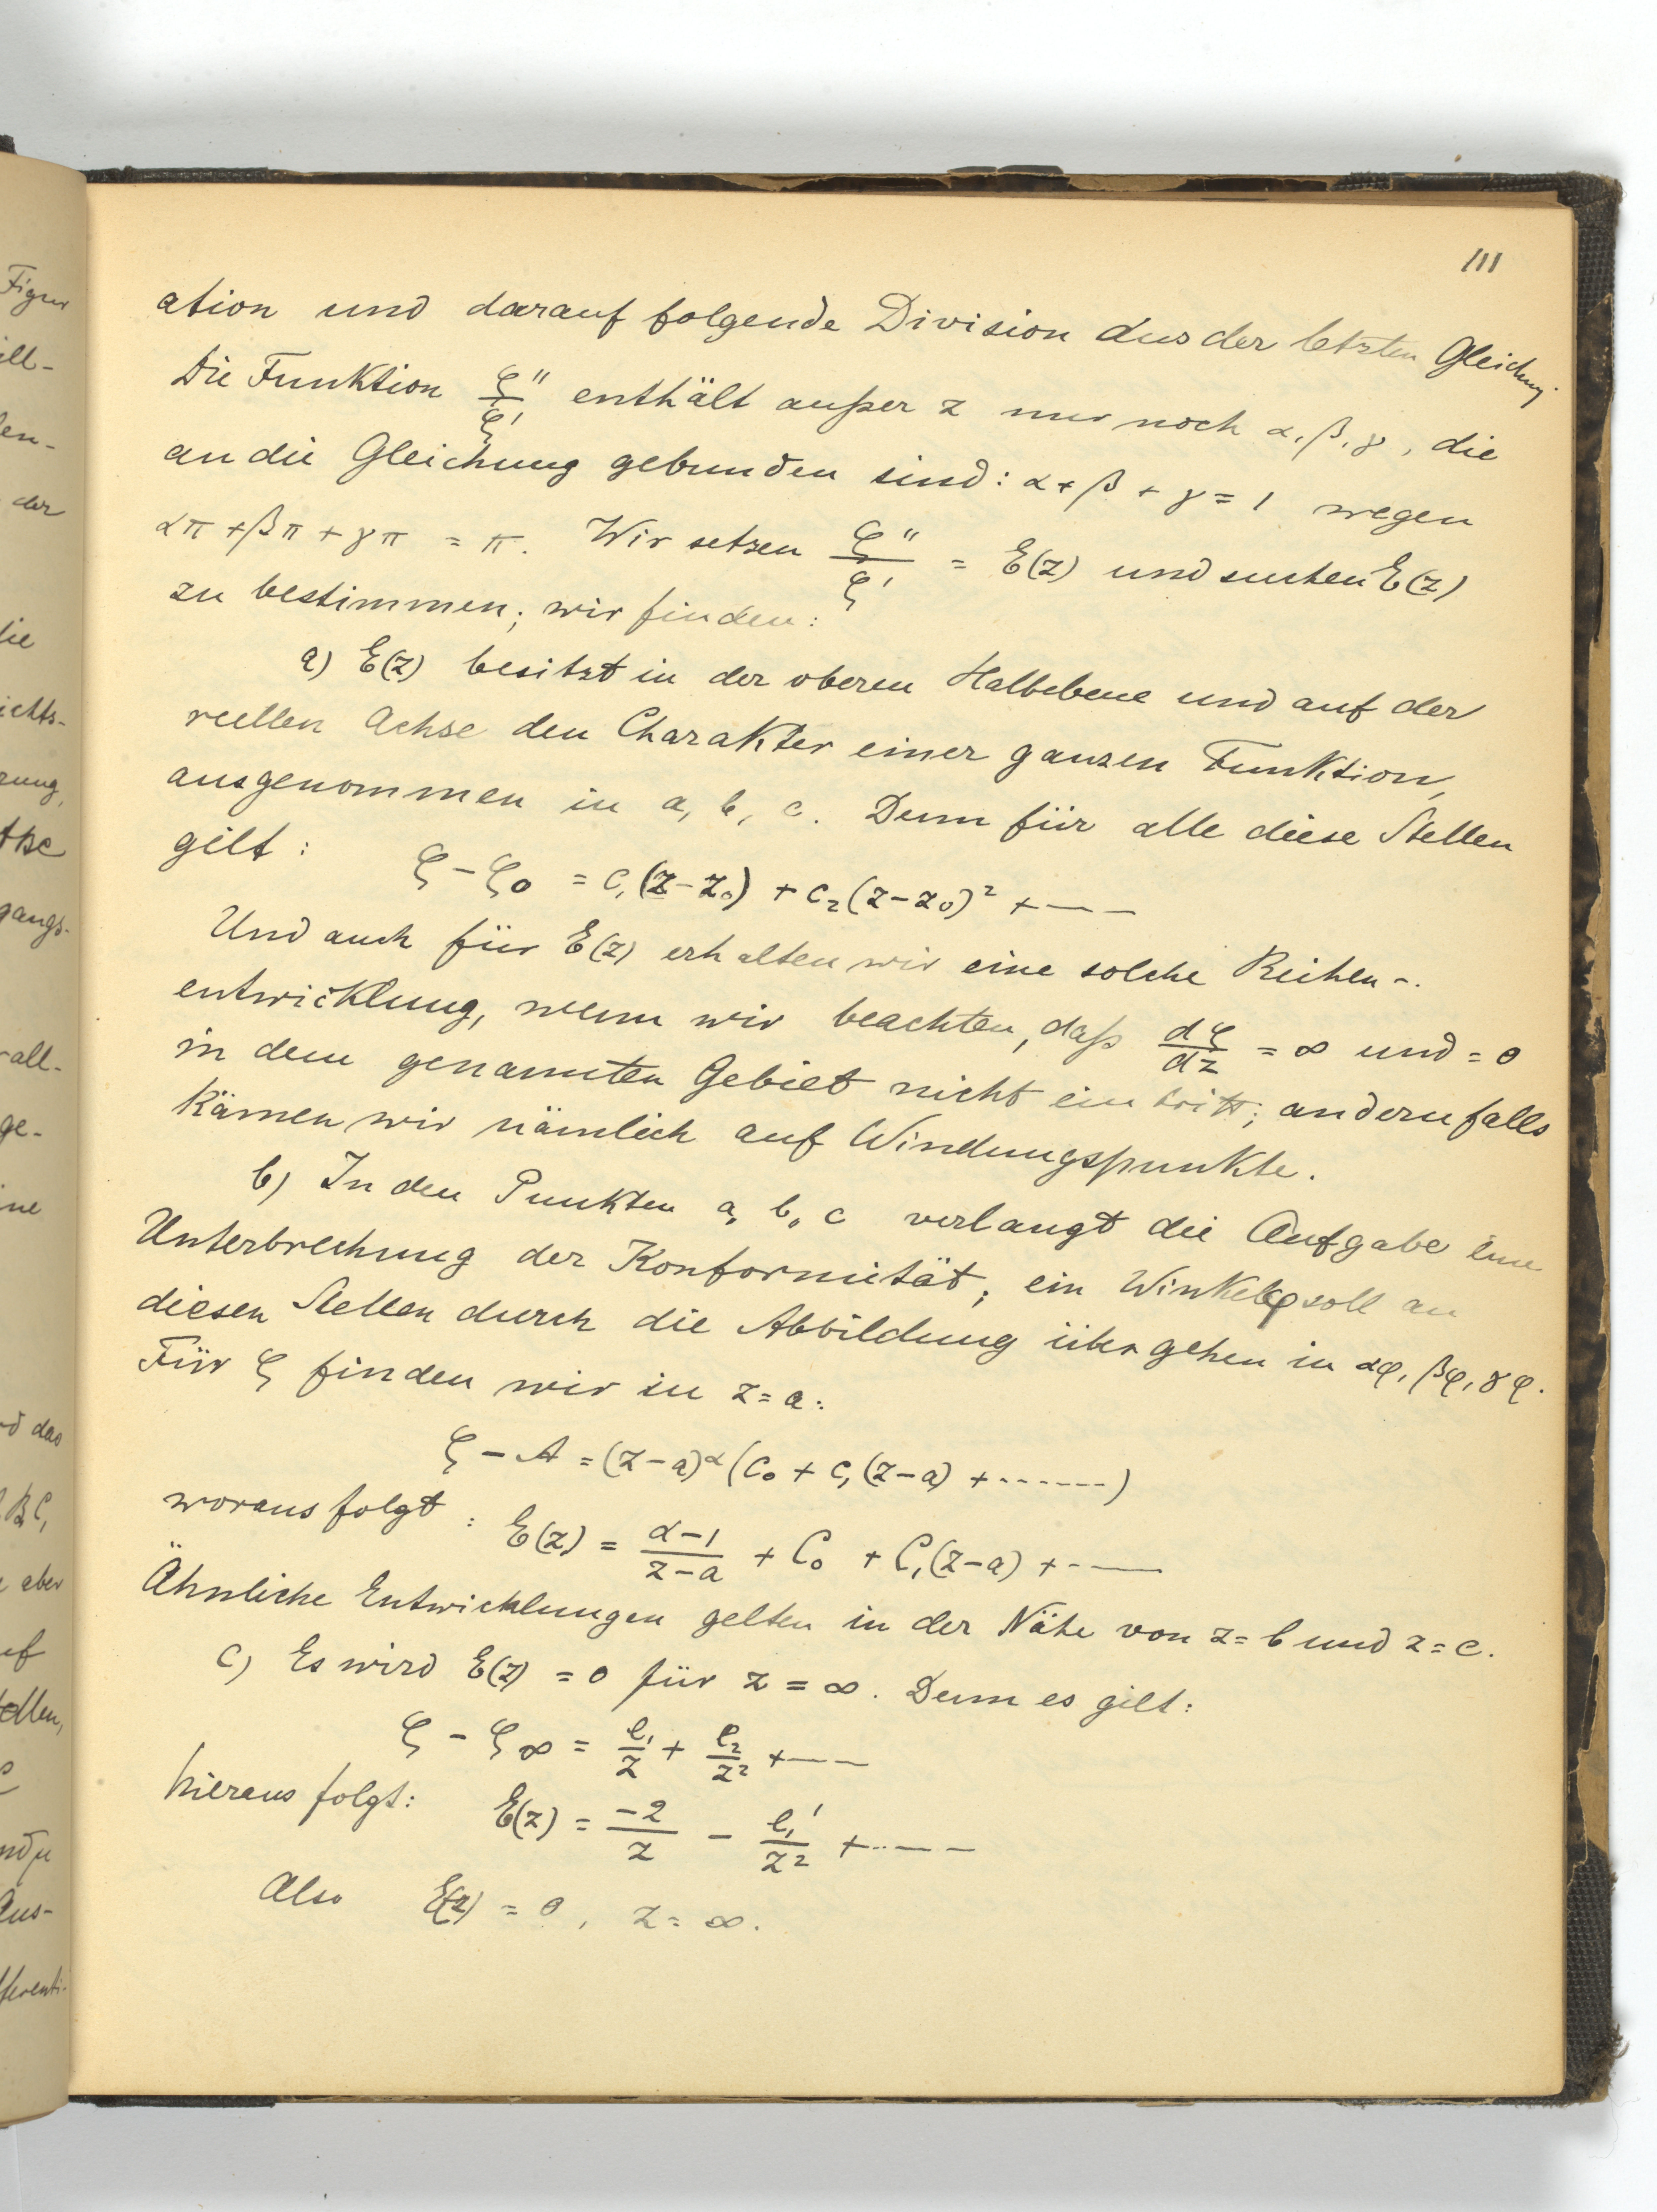 111
ation und darauf folgende Division aus der letzten Gleichung
Die Funktion ζ''/ζ' enthält außer z nur noch α, β, γ, die
an die Gleichung gebunden sind: α + β + γ = 1 wegen
απ + βπ + γπ = π. Wir setzen ζ''/ζ' = E(z) und suchen E(z)
zu bestimmen; wir finden:
a) E(z) besitzt in der oberen Halbebene und auf der
reellen Achse den Charakter einer ganzen Funktion,
ausgenommen in a, b, c. Denn für alle diese Stellen
gilt: ζ - ζ₀ = c₁(z-z₀) + c₂(z-z₀)² + ----
Und auch für E(z) erhalten wir eine solche Reihen-
entwicklung, wenn wir beachten, daß dζ/dz = ∞ und = 0
in dem genannten Gebiet nicht eintritt; andernfalls
kämen wir nämlich auf Windungspunkte.
b) In den Punkten a, b, c verlangt die Aufgabe eine
Unterbrechung der Konformität; ein Winkel φ soll an
diesen Stellen durch die Abbildung übergehen in αφ, βφ, γφ.
Für ζ finden wir in z = a:
ζ - A = (z-a)^α (c₀ + c₁(z-a) + ------)
woraus folgt: E(z) = (α-1)/(z-a) + C₀ + C₁(z-a) + ----
Ähnliche Entwicklungen gelten in der Nähe von z = b und z = c.
c) Es wird E(z) = 0 für z = ∞. Denn es gilt:
ζ - ζ∞ = e₁/z + e₂/z² + ----
hieraus folgt: E(z) = -2/z - e₁'/z² + -----
Also E(z) = 0, z = ∞.
Figur
ill-
en-
der
ichts-
rung,
gangs-
all-
ge-
ine
d das
BC,
aber
uf
ellen,
Aus-
fferenti-